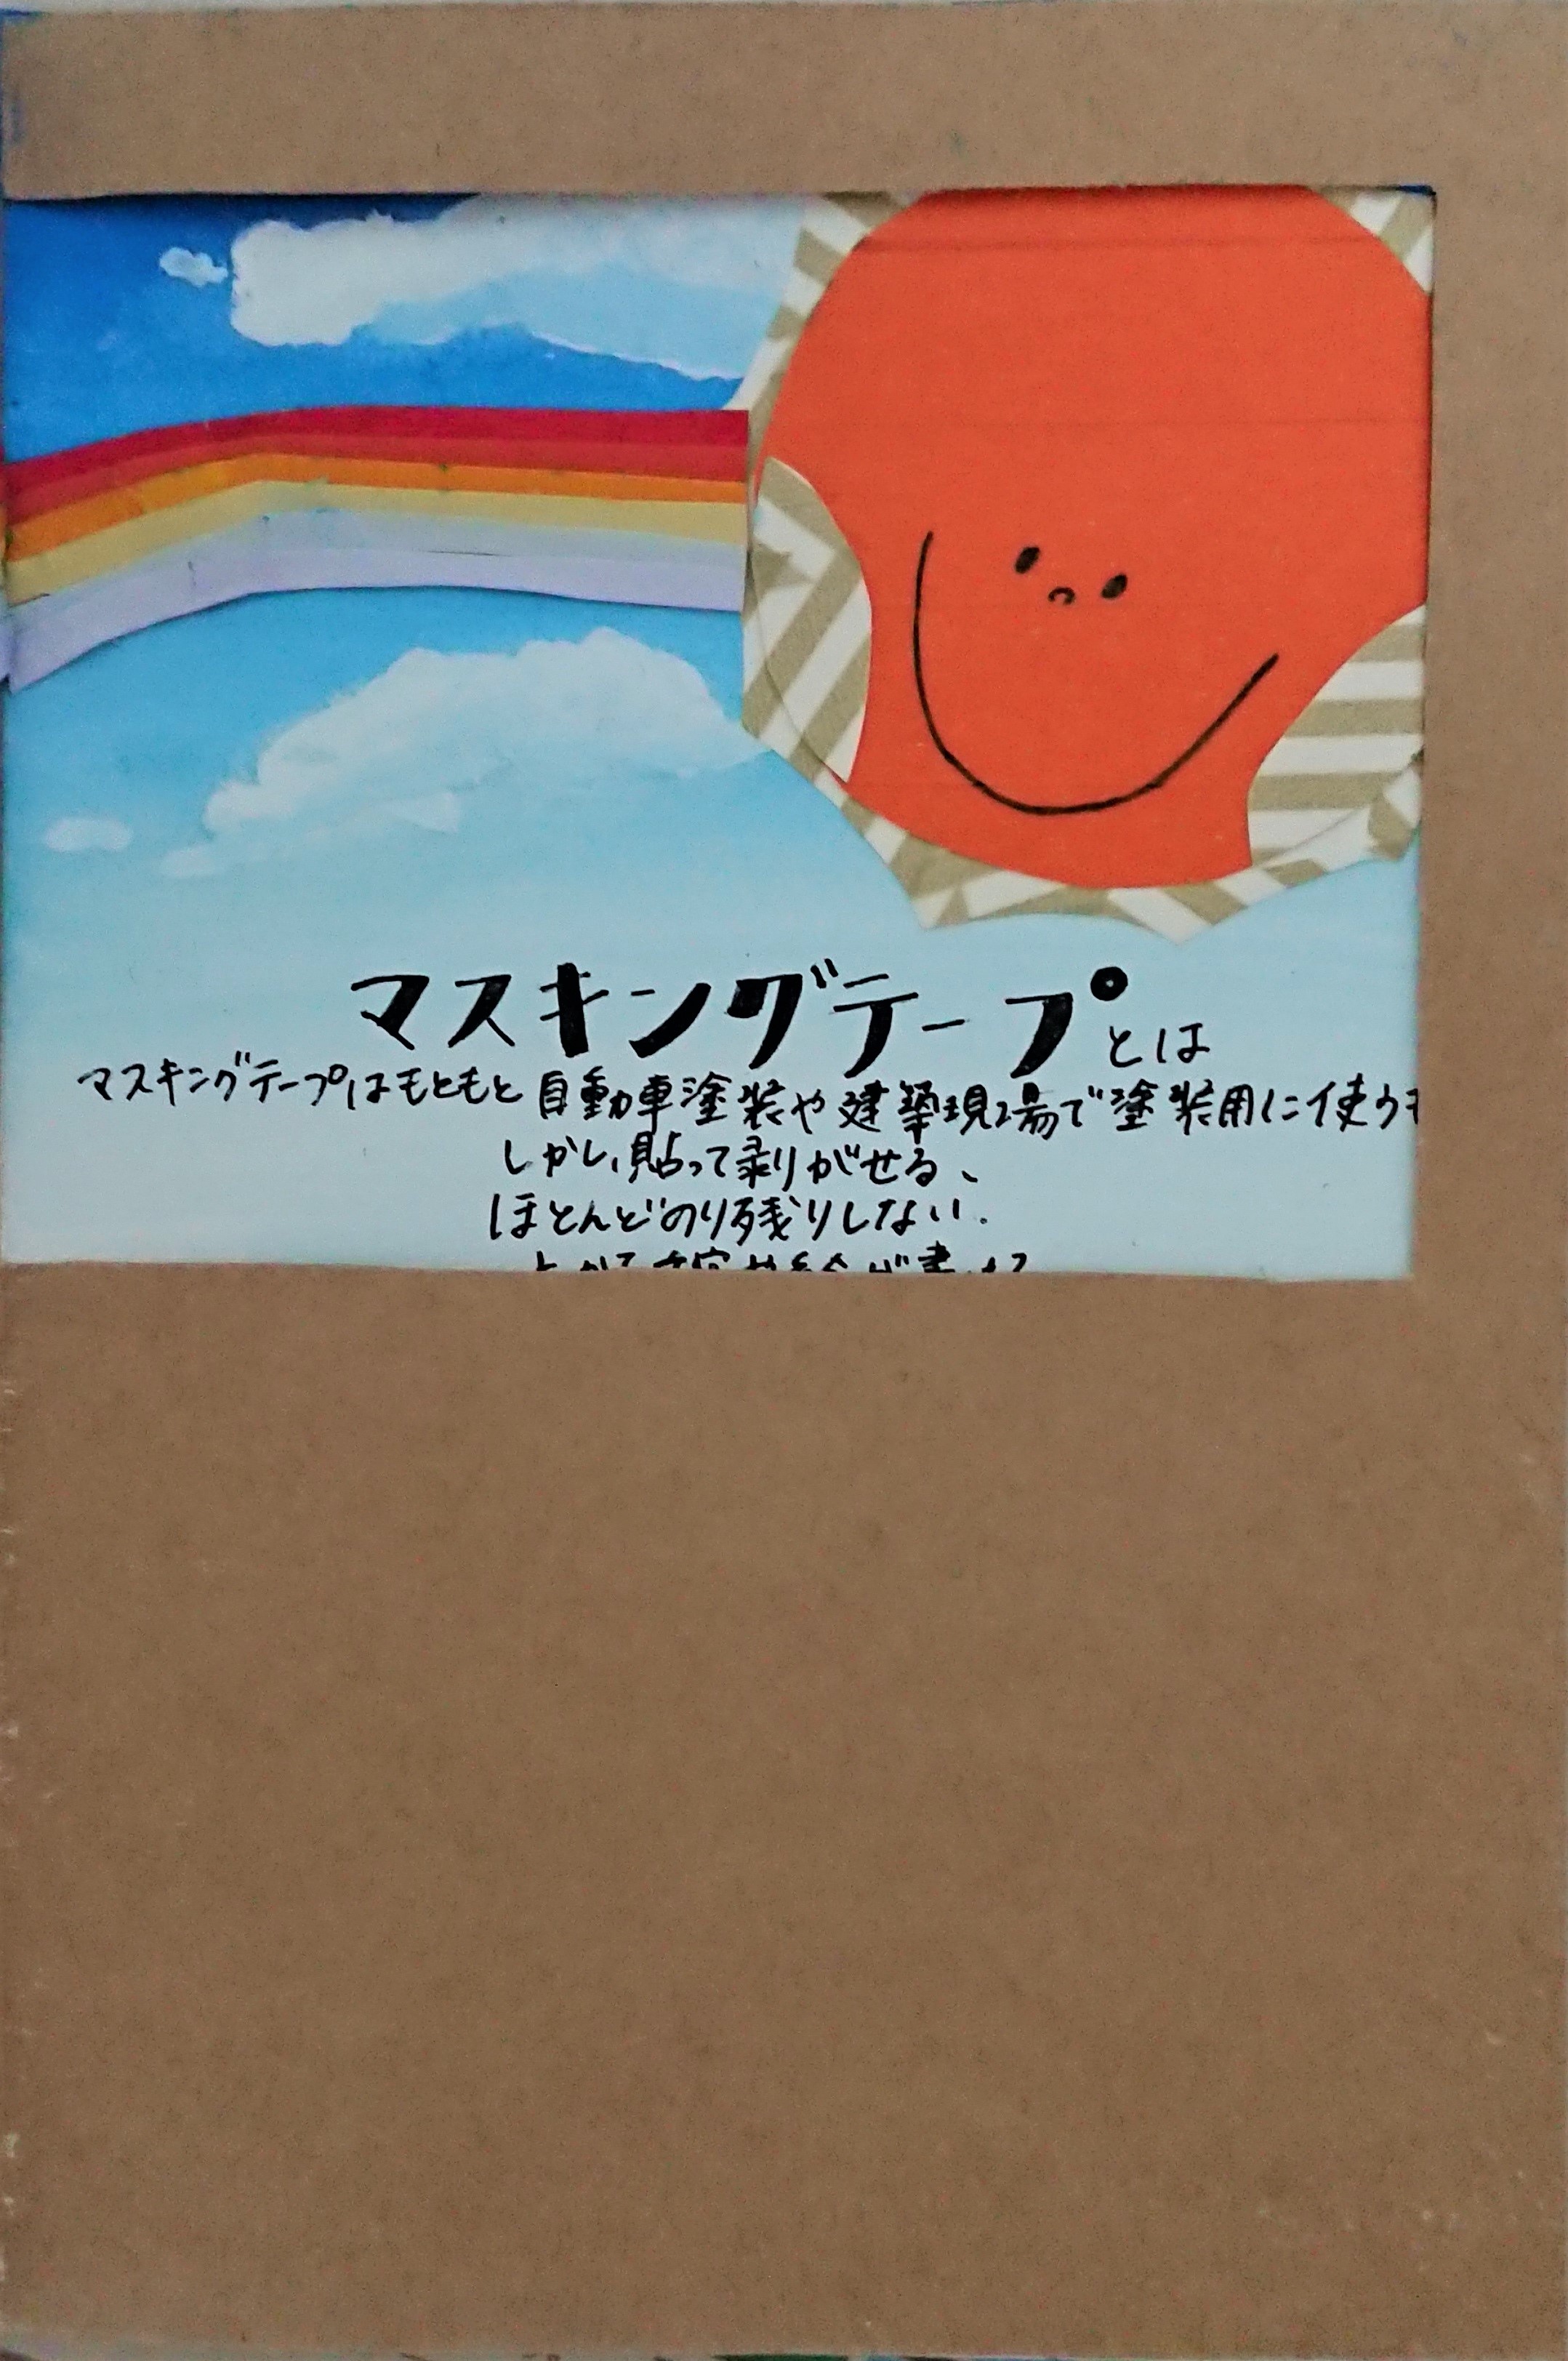 マスキングテープとは
マスキングテープはもともと自動車塗装や建築現場で塗装用に使う
しかし、貼って剥がせる、
ほとんどのり残りしない.